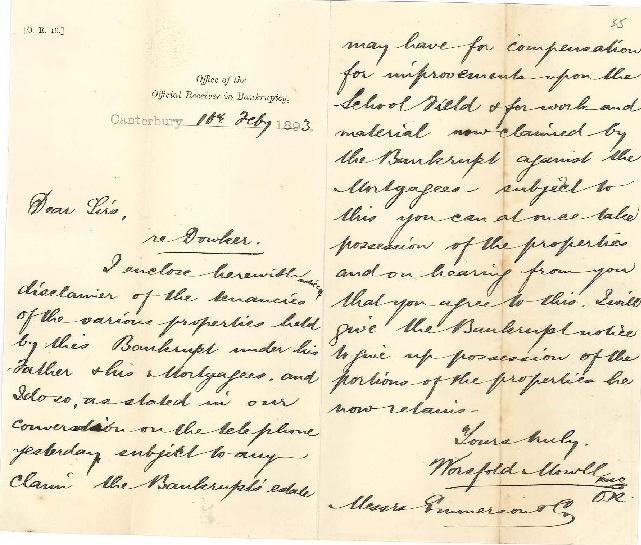 [O. R. 16.]
Office of the
Official Receiver in Bankruptcy,
Canterbury 18th Feby 1893
Dear Sirs,
re Dowker.
I enclose herewith notice of
disclaimer of the tenancies
of the various properties held
by this Bankrupt under his
Father & his Mortgagees, and
I do so, as stated in our
conversation on the telephone
yesterday subject to any
claim the Bankrupt's estate
35
may have for compensation
for improvements upon the
School Field & for work and
material now claimed by
the Bankrupt against the
Mortgagees – subject to
this you can at once take
possession of the properties
and on hearing from you
that you agree to this. I will
give the Bankrupt notice
to give up possession of the
portions of the properties he
now retains –
Yours truly.
Worsfold
O.R
Messrs Emmerson & Co